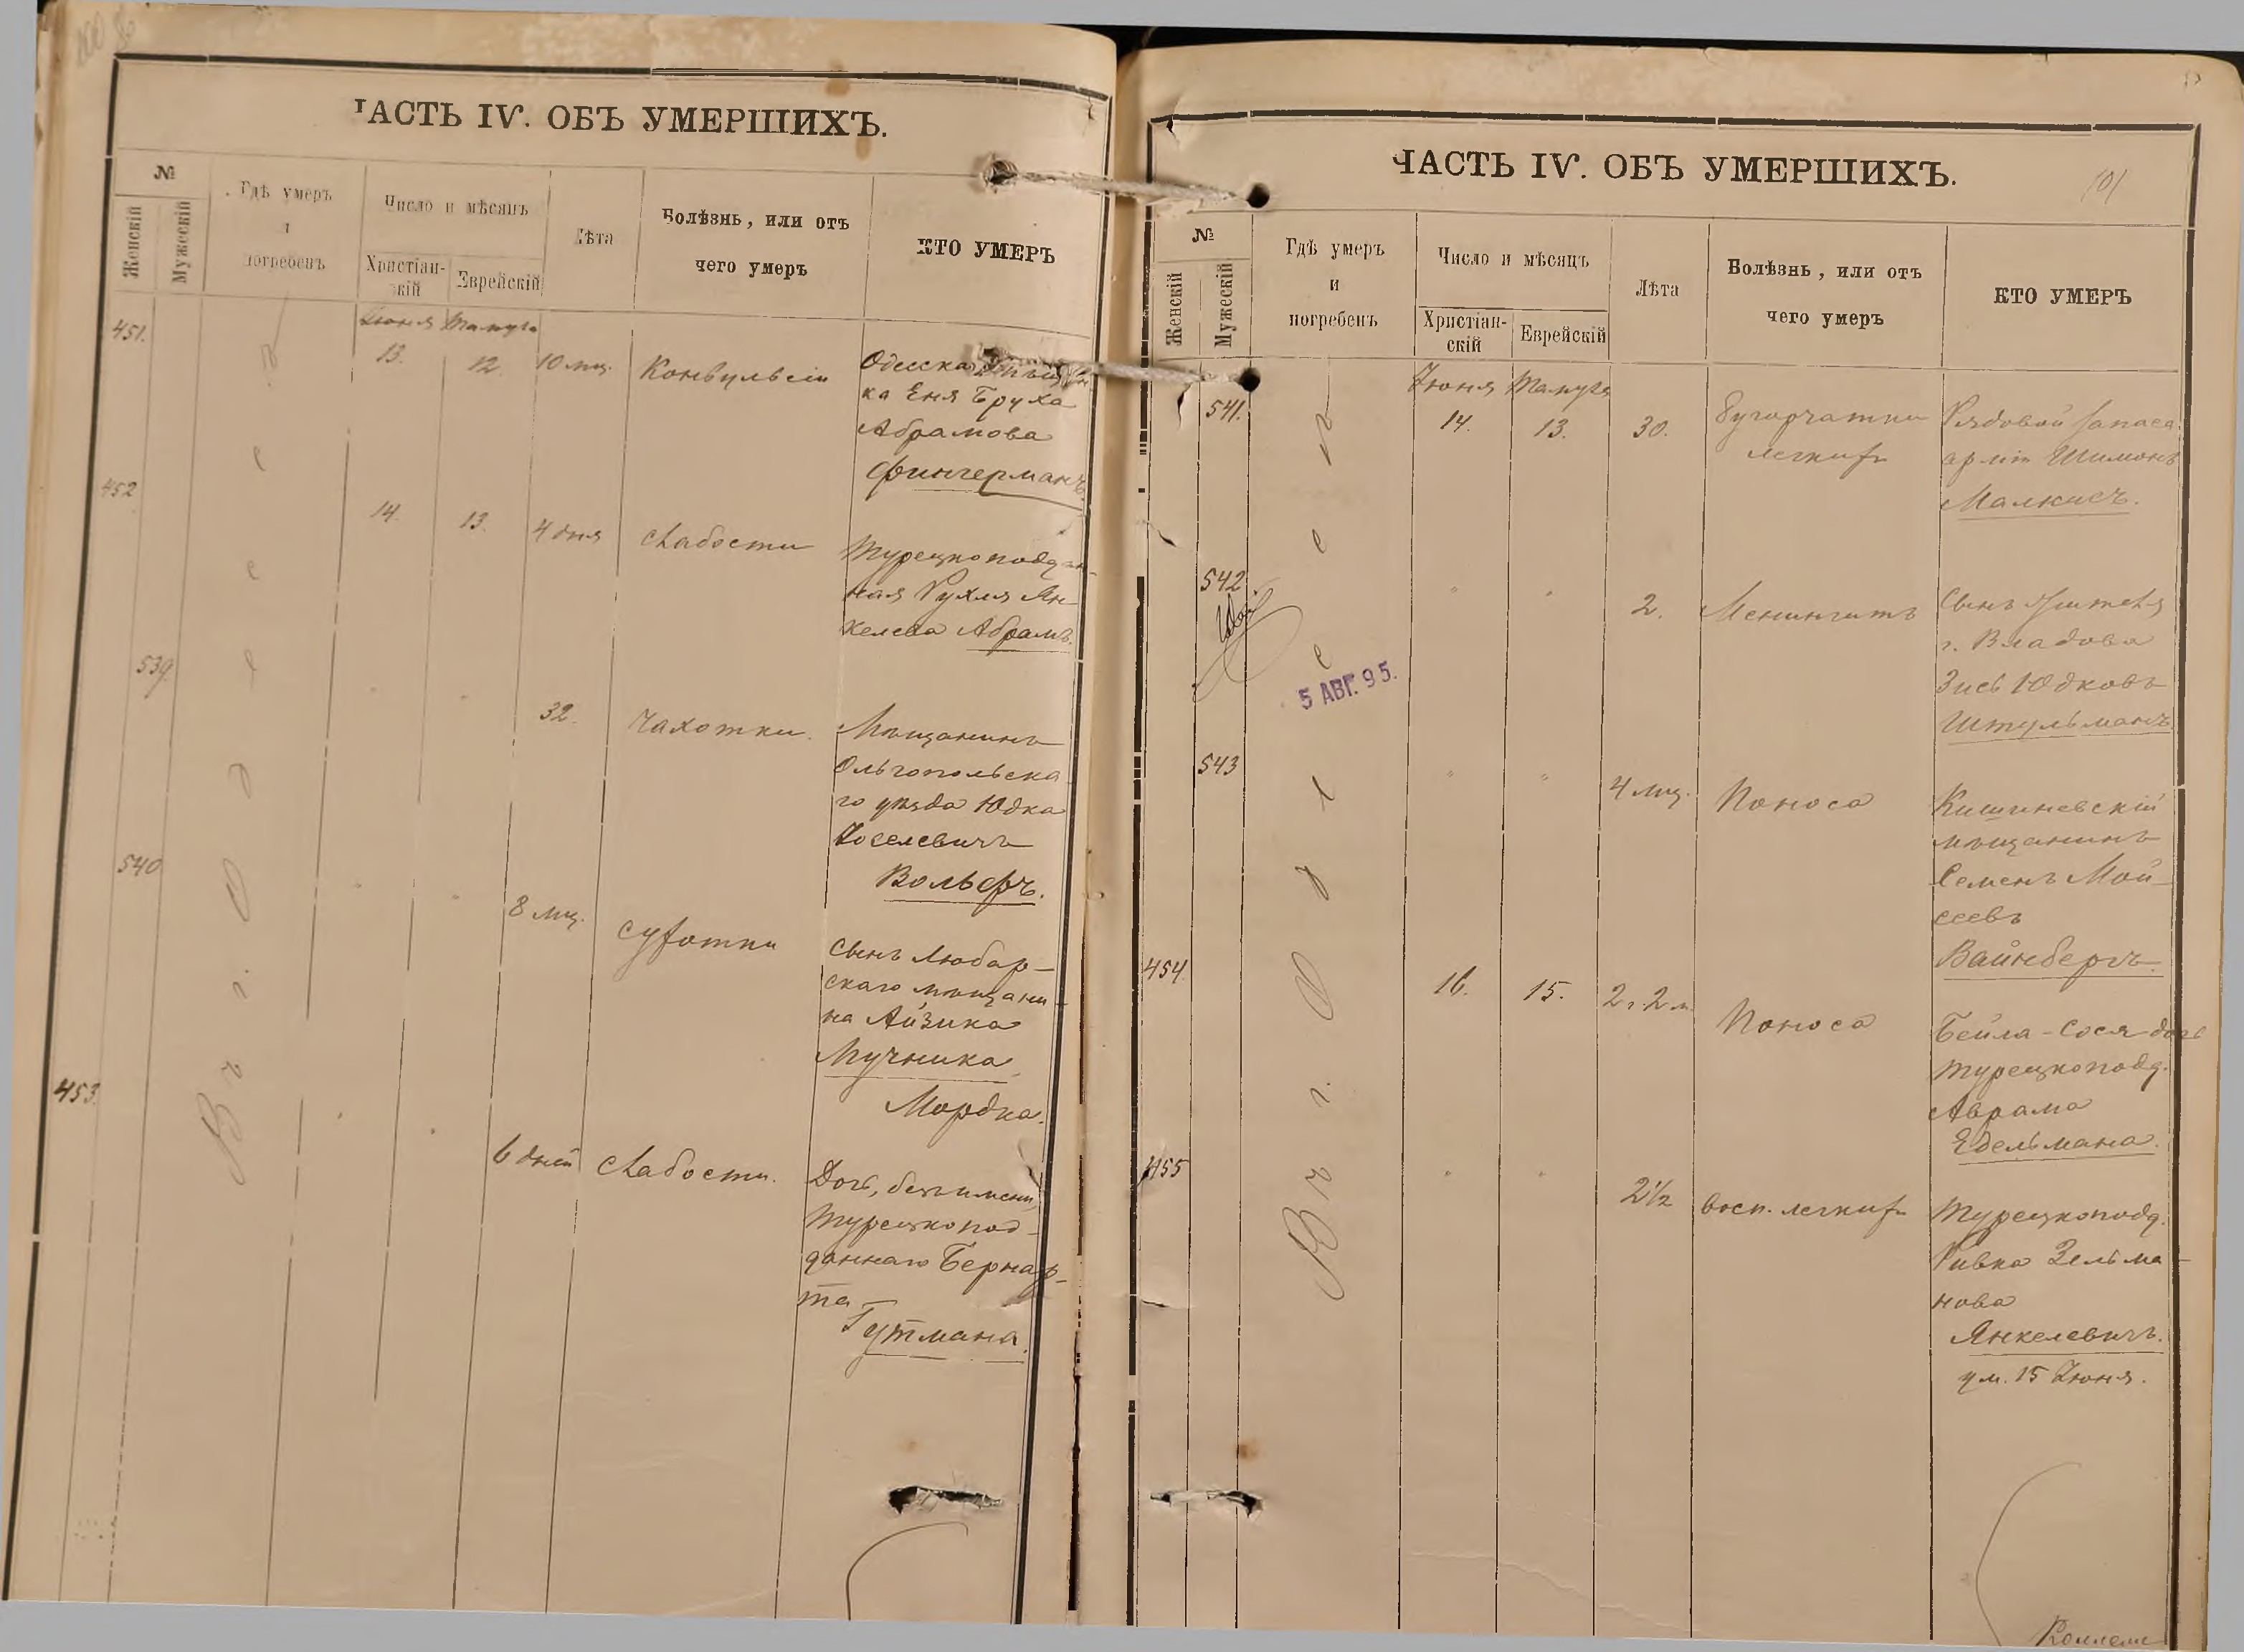 ЧАСТЬ IV. ОБЪ УМЕРШИХЪ.
№
Женскій
Мужескій
Гдѣ умеръ
и
погребенъ
Число и мѣсяцъ
Христіан-
скій
Еврейскій
Лѣта
Болѣзнь, или отъ
чего умеръ
КТО УМЕРЪ
В г. Одессѣ
451.
Іюня Тамуза
13. 12. 10 мц. Конвульсіи
Одесская мѣщан-
ка Еня Бруха
Абрамова
Фингерманъ.
452
14. 13. 4 дня слабости
Турецкоподдан-
ная Рухля Ян-
келева Абрамъ.
539.
" " 32. чахотки.
Мѣщанинъ
Ольгопольска
го уѣзда Юдка
Іоселевичъ
Вольфъ.
540
" " 8 мц. сухотки
Сынъ Любар-
скаго мѣщани-
на Айзика
Мучника
Мордка.
453.
" " 6 дней слабости.
Дочь, безъ имени,
Турецкопод-
даннаго Бернар-
та
Гутмана.
ЧАСТЬ IV. ОБЪ УМЕРШИХЪ.
101
№
Женскій
Мужескій
Гдѣ умеръ
и
погребенъ
Число и мѣсяцъ
Христіан-
скій
Еврейскій
Лѣта
Болѣзнь, или отъ
чего умеръ
КТО УМЕРЪ
В г. Одессѣ
541.
Іюня Тамуза
14. 13. 30. Бугорчатки
легкихъ
Рядовой запаса
арміи Шимонъ
Малкисъ.
542
" " 2. Менингитъ
Сынъ жителя
г. Владова
Зись Юдковъ
Штульманъ
5 АВГ. 95.
543
" " 4 мц. Поноса
Кишиневскій
мѣщанинъ
Семенъ Мой-
сеевъ
Вайнбергъ.
454.
16. 15. 2 г. 2 м. Поноса
Бейла-Сося дочь
Турецкоподд.
Аврама
Едельмана.
455
" " 2½ восп. легкихъ
Турецкоподд.
Ривка Зельма-
нова
Янкелевичъ.
ум. 15 Іюня.